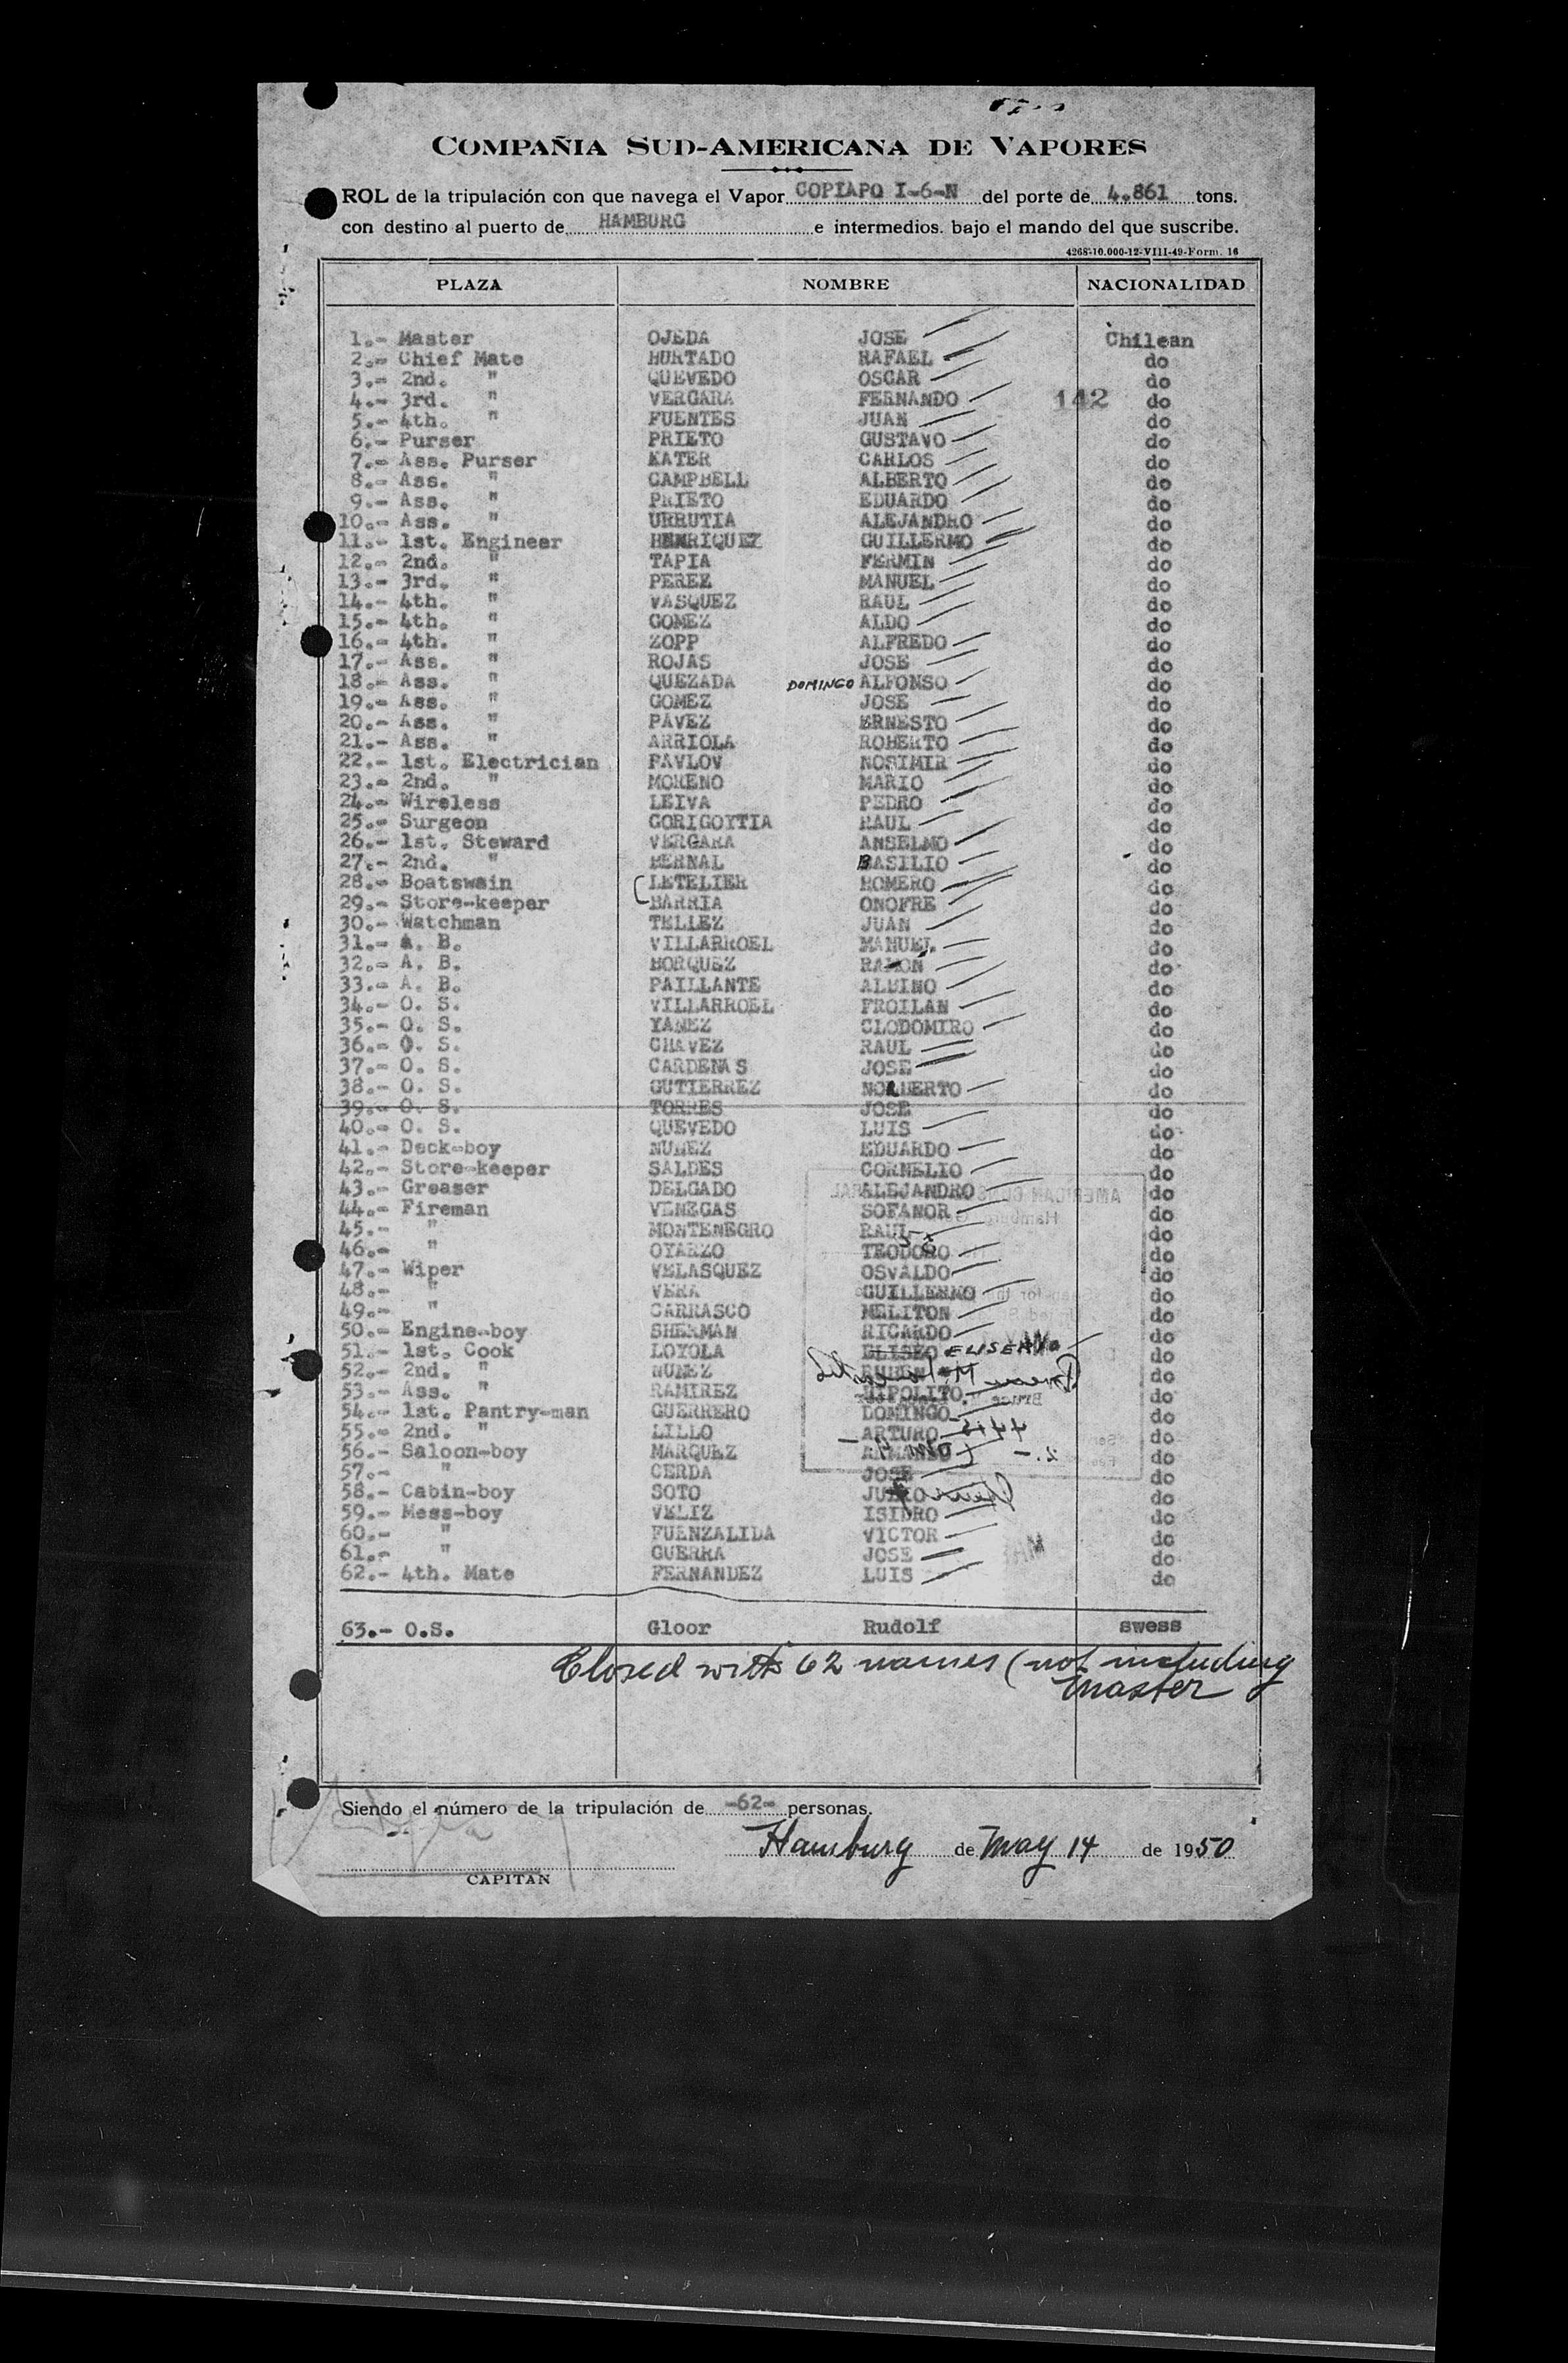 COMPAÑIA SUD-AMERICANA DE VAPORES
ROL de la tripulación con que navega el Vapor COPIAPO I-6-N del porte de 4.861 tons.
con destino al puerto de HAMBURG e intermedios. bajo el mando del que suscribe.
4268-10.000-12-VIII-49-Form. 16
PLAZA NOMBRE NACIONALIDAD
1.- Master OJEDA JOSE Chilean
2.- Chief Mate HURTADO RAFAEL do
3.- 2nd. " QUEVEDO OSCAR do
4.- 3rd. " VERGARA FERNANDO 142 do
5.- 4th. " FUENTES JUAN do
6.- Purser PRIETO GUSTAVO do
7.- Ass. Purser KATER CARLOS do
8.- Ass. " CAMPBELL ALBERTO do
9.- Ass. " PRIETO EDUARDO do
10.- Ass. " URRUTIA ALEJANDRO do
11.- 1st. Engineer HENRIQUEZ GUILLERMO do
12.- 2nd. " TAPIA FERMIN do
13.- 3rd. " PEREZ MANUEL do
14.- 4th. " VASQUEZ RAUL do
15.- 4th. " GOMEZ ALDO do
16.- 4th. " ZOPP ALFREDO do
17.- Ass. " ROJAS JOSE do
18.- Ass. " QUEZADA DOMINGO ALFONSO do
19.- Ass. " GOMEZ JOSE do
20.- Ass. " PAVEZ ERNESTO do
21.- Ass. " ARRIOLA ROBERTO do
22.- 1st. Electrician PAVLOV NOSIMIR do
23.- 2nd. " MORENO MARIO do
24.- Wireless LEIVA PEDRO do
25.- Surgeon GORIGOYTIA RAUL do
26.- 1st. Steward VERGARA ANSELMO do
27.- 2nd. " BERNAL BASILIO do
28.- Boatswain LETELIER HOMERO do
29.- Store-keeper BARRIA ONOFRE do
30.- Watchman TELLEZ JUAN do
31.- A. B. VILLARROEL MANUEL do
32.- A. B. BORQUEZ RAMON do
33.- A. B. PAILLANTE ALBINO do
34.- O. S. VILLARROEL FROILAN do
35.- O. S. YANEZ CLODOMIRO do
36.- O. S. CHAVEZ RAUL do
37.- O. S. CARDENAS JOSE do
38.- O. S. GUTIERREZ NORBERTO do
39.- O. S. TORRES JOSE do
40.- O. S. QUEVEDO LUIS do
41.- Deck-boy NUNEZ EDUARDO do
42.- Store-keeper SALDES CORNELIO do
43.- Greaser DELGADO ALEJANDRO do
44.- Fireman VENEGAS SOFANOR do
45.- " MONTENEGRO RAUL do
46.- " OYARZO TEODORO do
47.- Wiper VELASQUEZ OSVALDO do
48.- " VERA GUILLERMO do
49.- " CARRASCO MELITON do
50.- Engine-boy SHERMAN RICARDO do
51.- 1st. Cook LOYOLA ELISEO do
52.- 2nd. " NUNEZ RUBEN do
53.- Ass. " RAMIREZ HIPOLITO do
54.- 1st. Pantry-man GUERRERO DOMINGO do
55.- 2nd. " LILLO ARTURO do
56.- Saloon-boy MARQUEZ ARMANDO do
57.- " CERDA JOSE do
58.- Cabin-boy SOTO JULIO do
59.- Mess-boy VELIZ ISIDRO do
60.- " FUENZALIDA VICTOR do
61.- " GUERRA JOSE do
62.- 4th. Mate FERNANDEZ LUIS do
63.- O.S. Gloor Rudolf swess
Closed with 62 names (not including
master
Siendo el número de la tripulación de -62- personas.
Hamburg de May 14 de 1950
CAPITAN